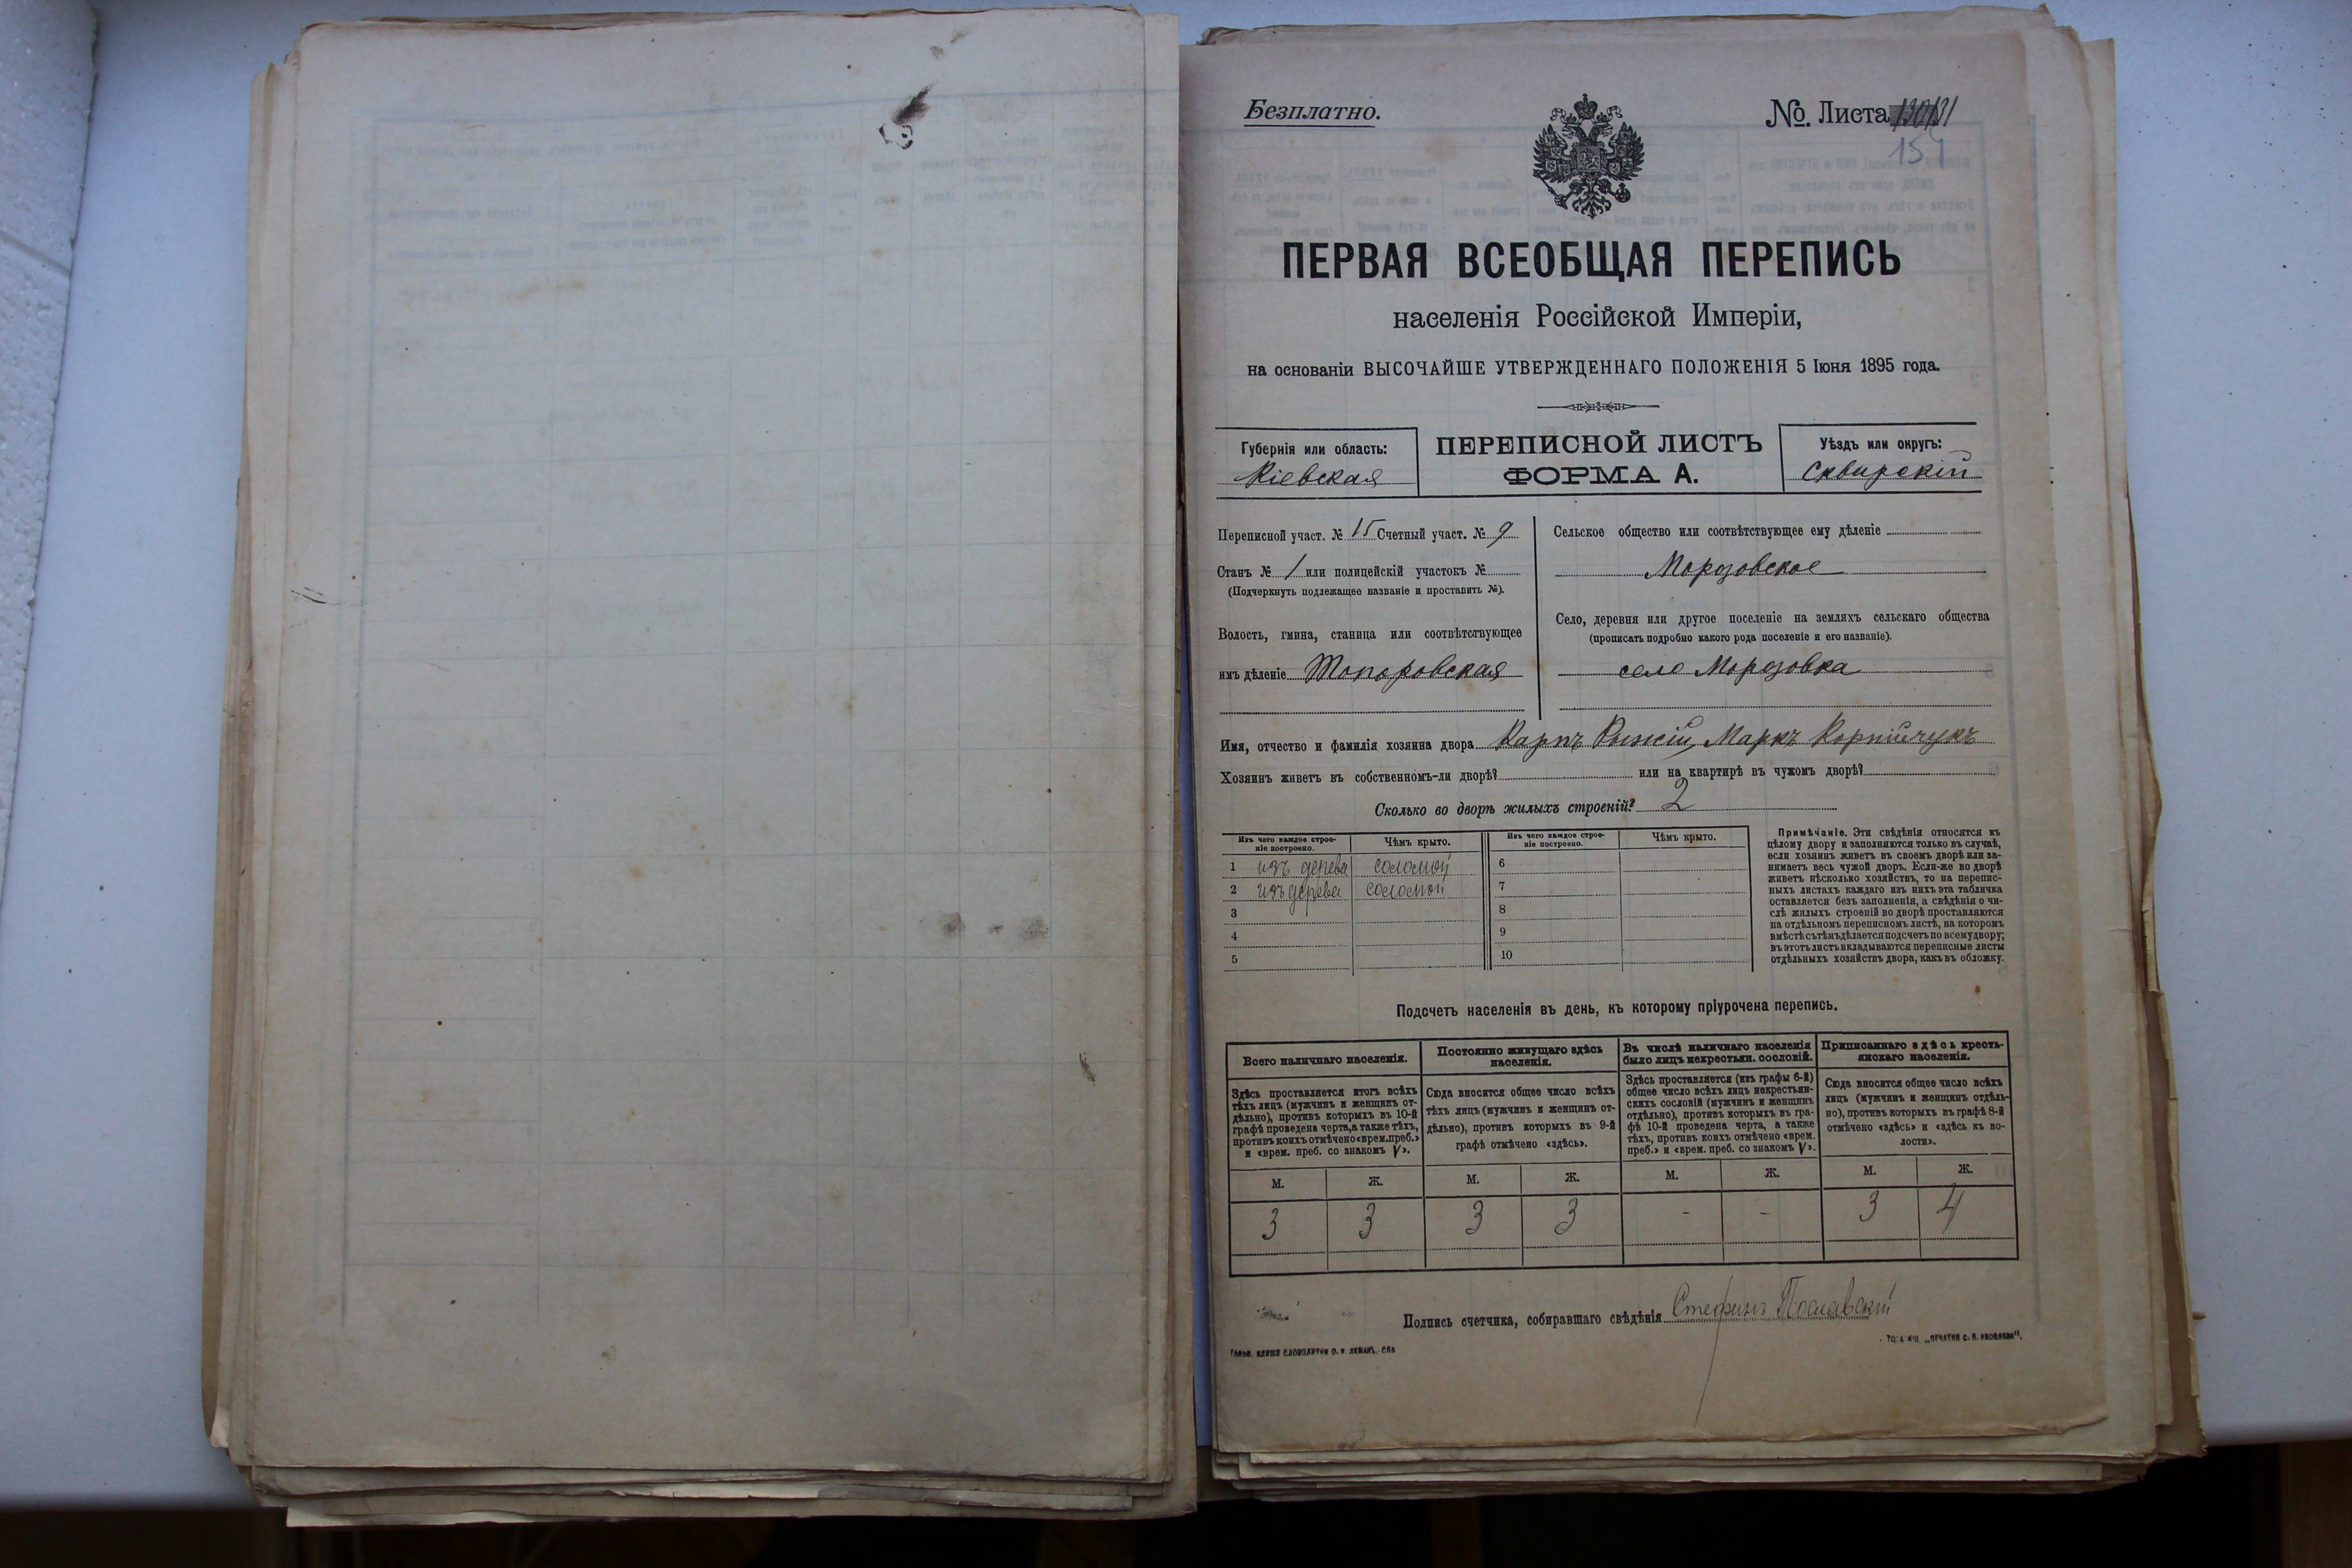 Безплатно.
№. Листа 130/131
151
ПЕРВАЯ ВСЕОБЩАЯ ПЕРЕПИСЬ
населенія Россійской Имперіи,
на основаніи ВЫСОЧАЙШЕ УТВЕРЖДЕННАГО ПОЛОЖЕНІЯ 5 Іюня 1895 года.
Губернія или область:
Кіевская
ПЕРЕПИСНОЙ ЛИСТЪ
ФОРМА А.
Уѣздъ или округъ:
Сквирскій
Переписной участ. № 15 Счетный участ. № 9
Станъ № 1 или полицейскій участокъ №
(Подчеркнуть подлежащее названіе и проставить №).
Волость, гмина, станица или соотвѣтствующее
имъ дѣленіе Топоровская
Сельское общество или соотвѣтствующее ему дѣленіе
Морозовское
Село, деревня или другое поселеніе на земляхъ сельскаго общества
(прописать подробно какого рода поселеніе и его названіе).
село Морозовка
Имя, отчество и фамилія хозяина двора Карпъ Рыжій, Маркъ Корнійчукъ
Хозяинъ живетъ въ собственномъ-ли дворѣ? или на квартирѣ въ чужомъ дворѣ?
Сколько во дворѣ жилыхъ строеній? 2
Изъ чего каждое строе-
ніе построено.
Чѣмъ крыто.
Изъ чего каждое строе-
ніе построено.
Чѣмъ крыто.
1 изъ дерева соломой
2 изъ дерева соломой
3
4
5
6
7
8
9
10
Примѣчаніе. Эти свѣдѣнія относятся къ
цѣлому двору и заполняются только въ случаѣ,
если хозяинъ живетъ въ своемъ дворѣ или за-
нимаетъ весь чужой дворъ. Если-же во дворѣ
живетъ нѣсколько хозяйствъ, то на перепис-
ныхъ листахъ каждаго изъ нихъ эта табличка
оставляется безъ заполненія, а свѣдѣнія о чи-
слѣ жилыхъ строеній во дворѣ проставляются
на отдѣльномъ переписномъ листѣ, на которомъ
вмѣстѣ съ тѣмъ дѣлается подсчетъ по всему двору;
въ этотъ листъ вкладываются переписные листы
отдѣльныхъ хозяйствъ двора, какъ въ обложку.
Подсчетъ населенія въ день, къ которому пріурочена перепись.
Всего наличнаго населенія.
Здѣсь проставляется итогъ всѣхъ
тѣхъ лицъ (мужчинъ и женщинъ от-
дѣльно), противъ которыхъ въ 10-й
графѣ проведена черта, а также тѣхъ,
противъ коихъ отмѣчено «врем. преб.»
и «врем. преб. со знакомъ V».
Постоянно живущаго здѣсь
населенія.
Сюда вносится общее число всѣхъ
тѣхъ лицъ (мужчинъ и женщинъ от-
дѣльно), противъ которыхъ въ 9-й
графѣ отмѣчено «здѣсь».
Въ числѣ наличнаго населенія
было лицъ некрестьян. сословій.
Здѣсь проставляется (изъ графы 6-й)
общее число всѣхъ лицъ некрестьян-
скихъ сословій (мужчинъ и женщинъ
отдѣльно), противъ которыхъ въ гра-
фѣ 10-й проведена черта, а также
тѣхъ, противъ коихъ отмѣчено «врем.
преб.» и «врем. преб. со знакомъ V».
Приписаннаго здѣсь кресть-
янскаго населенія.
Сюда вносится общее число всѣхъ
лицъ (мужчинъ и женщинъ отдѣль-
но), противъ которыхъ въ графѣ 8-й
отмѣчено «здѣсь» и «здѣсь къ во-
лости».
М. Ж. М. Ж. М. Ж. М. Ж.
3 3 3 3 - - 3 4
Подпись счетчика, собиравшаго свѣдѣнія Стефанъ